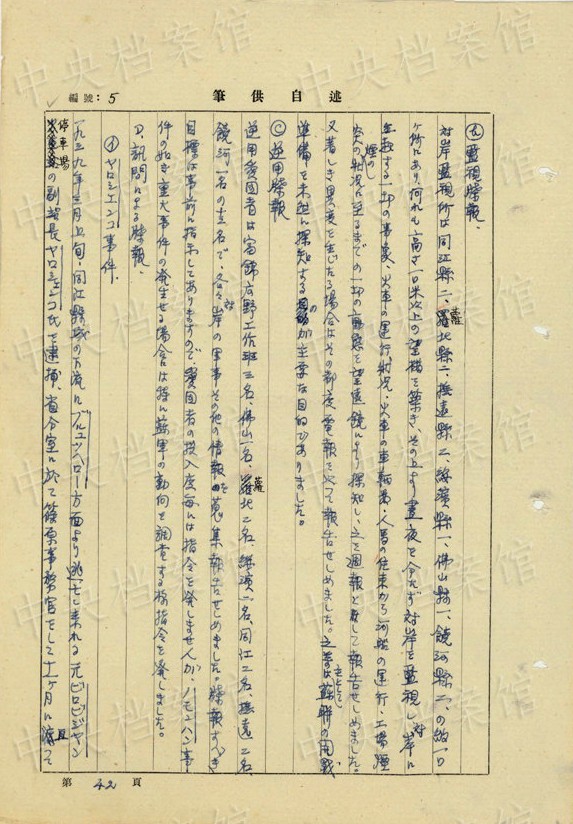 編號:5
筆供自述
(B) 監視諜報、
対岸監視所は同江縣二、蘿北縣二、撫遠縣二、綏濱縣一、佛山縣一、饒河縣二、の約一〇
ヶ所にあり何れも高さ一〇米以上の望楼を築き、その上より晝夜を分たず対岸を監視し対岸に
生起する一切の事象、火車の運行状況・火車の車輌数・人馬の往来から河船の運行・工場煙突の煙の
状況に至るまでの一切の事態を望遠鏡により探知し、之を週報として報告せしめました。
又著しき異変を生じたる場合はその都度電報を以て報告せしめました。之等は主として蘇聯の開戦
準備を未然に探知するのが主要な目的でありました。
(C) 逆用諜報
逆用愛国者は富錦在野工作班三名、佛山一名、蘿北二名、綏濱一名、同江二名、撫遠二名、
饒河一名の十二名で、各々対岸の軍事その他の情報を蒐集報告せしめました。諜報すべき
目標は事前に指示してありますので、愛国者の投入度毎には指令を発しませんが、ノモンハン事
件の如き重大事件の発生せる場合は特に蘇軍の動向を調査する様指令を発しました。
D、訊問による諜報、
(1) ヤロシェンコ事件、
一九三九年三月上旬・同江縣城の下流にブルュツヘロー方面より逃亡し来れる元ビロビジャン
停車場の副站長ヤロシェンコ氏を逮捕、省分室に於て篠原事務官をして十一ヶ月に渡って
第 42 頁
中央档案馆